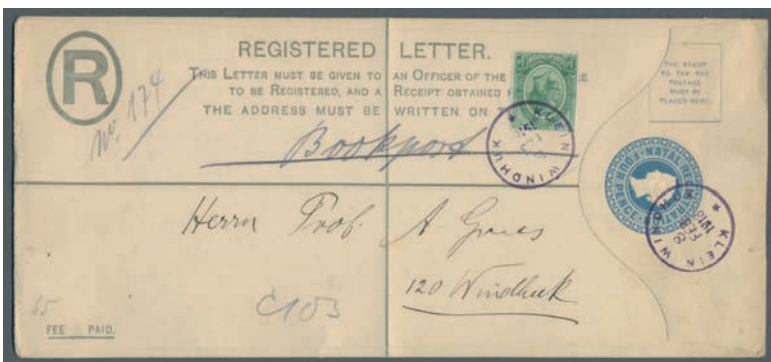 R
REGISTERED LETTER.
THIS LETTER MUST BE GIVEN TO AN OFFICER OF THE
TO BE REGISTERED, AND A RECEIPT OBTAINED
THE ADDRESS MUST BE WRITTEN ON
THE STAMP
TO PAY THE
POSTAGE
MUST BE
PLACED HERE.
No. 174
Bookpost
KLEIN WINDHUK
NATAL REGISTRATION
FOUR PENCE
KLEIN WINDHUK
Herrn Prof. A
120 Windhuk
C103
65
FEE PAID.